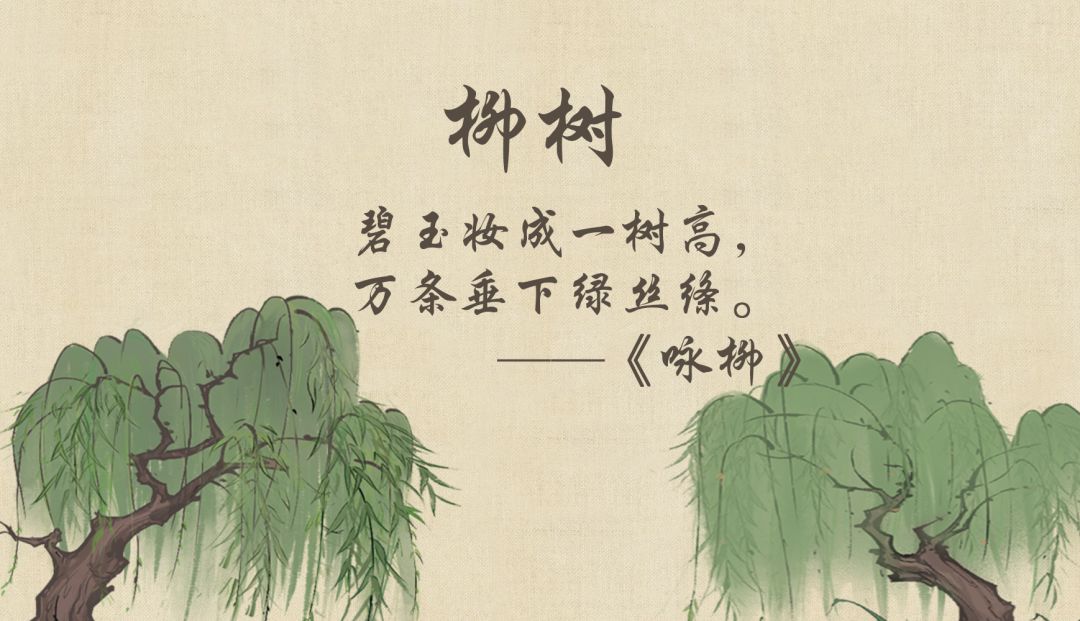 柳树
碧玉妆成一树高，
万条垂下绿丝绦。
——《咏柳》